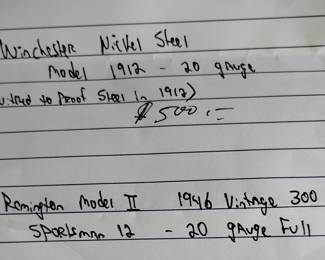 Winchester Nickel Steel
Model 1912 - 20 gauge
to Proof Steel in 1912)
$500.=
Remington Model II 1946 Vintage 300
Sportsman 12 - 20 gauge Full